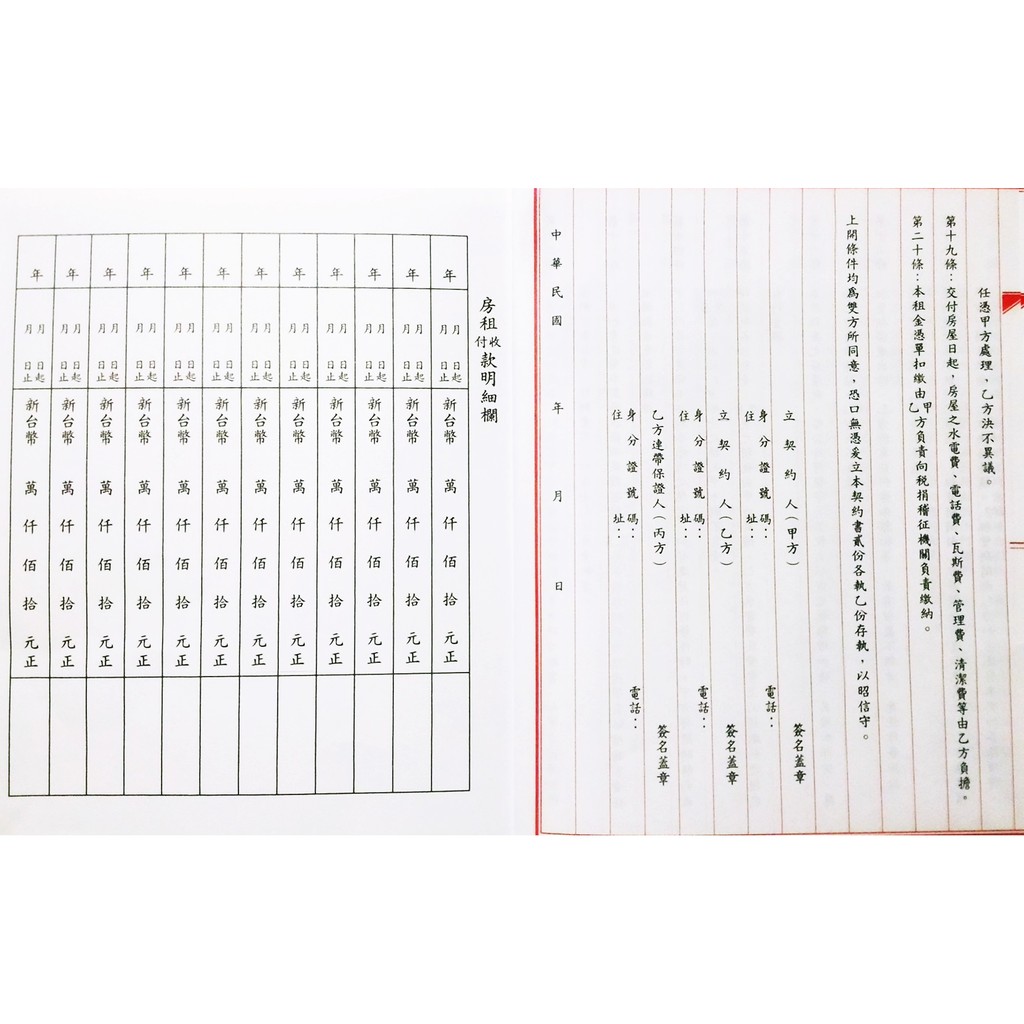 任憑甲方處理、乙方決不異議。
第十九條：交付房屋日起，房屋之水電費、電話費、瓦斯費、管理費、清潔費等由乙方負擔。
第二十條：本租金憑單扣繳由甲乙方負責向稅捐稽征機關負責繳納。
上開條件均為雙方所同意，恐口無憑爰立本契約書貳份各執乙份存執，以昭信守。
立契約人（甲方） 簽名蓋章
身分證號碼： 電話：
住址：
立契約人（乙方） 簽名蓋章
身分證號碼： 電話：
住址：
乙方連帶保證人（丙方） 簽名蓋章
身分證號碼： 電話：
住址：
中華民國 年 月 日
房租收付款明細欄
年 月日起 月日止 新台幣 萬仟佰拾元正
年 月日起 月日止 新台幣 萬仟佰拾元正
年 月日起 月日止 新台幣 萬仟佰拾元正
年 月日起 月日止 新台幣 萬仟佰拾元正
年 月日起 月日止 新台幣 萬仟佰拾元正
年 月日起 月日止 新台幣 萬仟佰拾元正
年 月日起 月日止 新台幣 萬仟佰拾元正
年 月日起 月日止 新台幣 萬仟佰拾元正
年 月日起 月日止 新台幣 萬仟佰拾元正
年 月日起 月日止 新台幣 萬仟佰拾元正
年 月日起 月日止 新台幣 萬仟佰拾元正
年 月日起 月日止 新台幣 萬仟佰拾元正